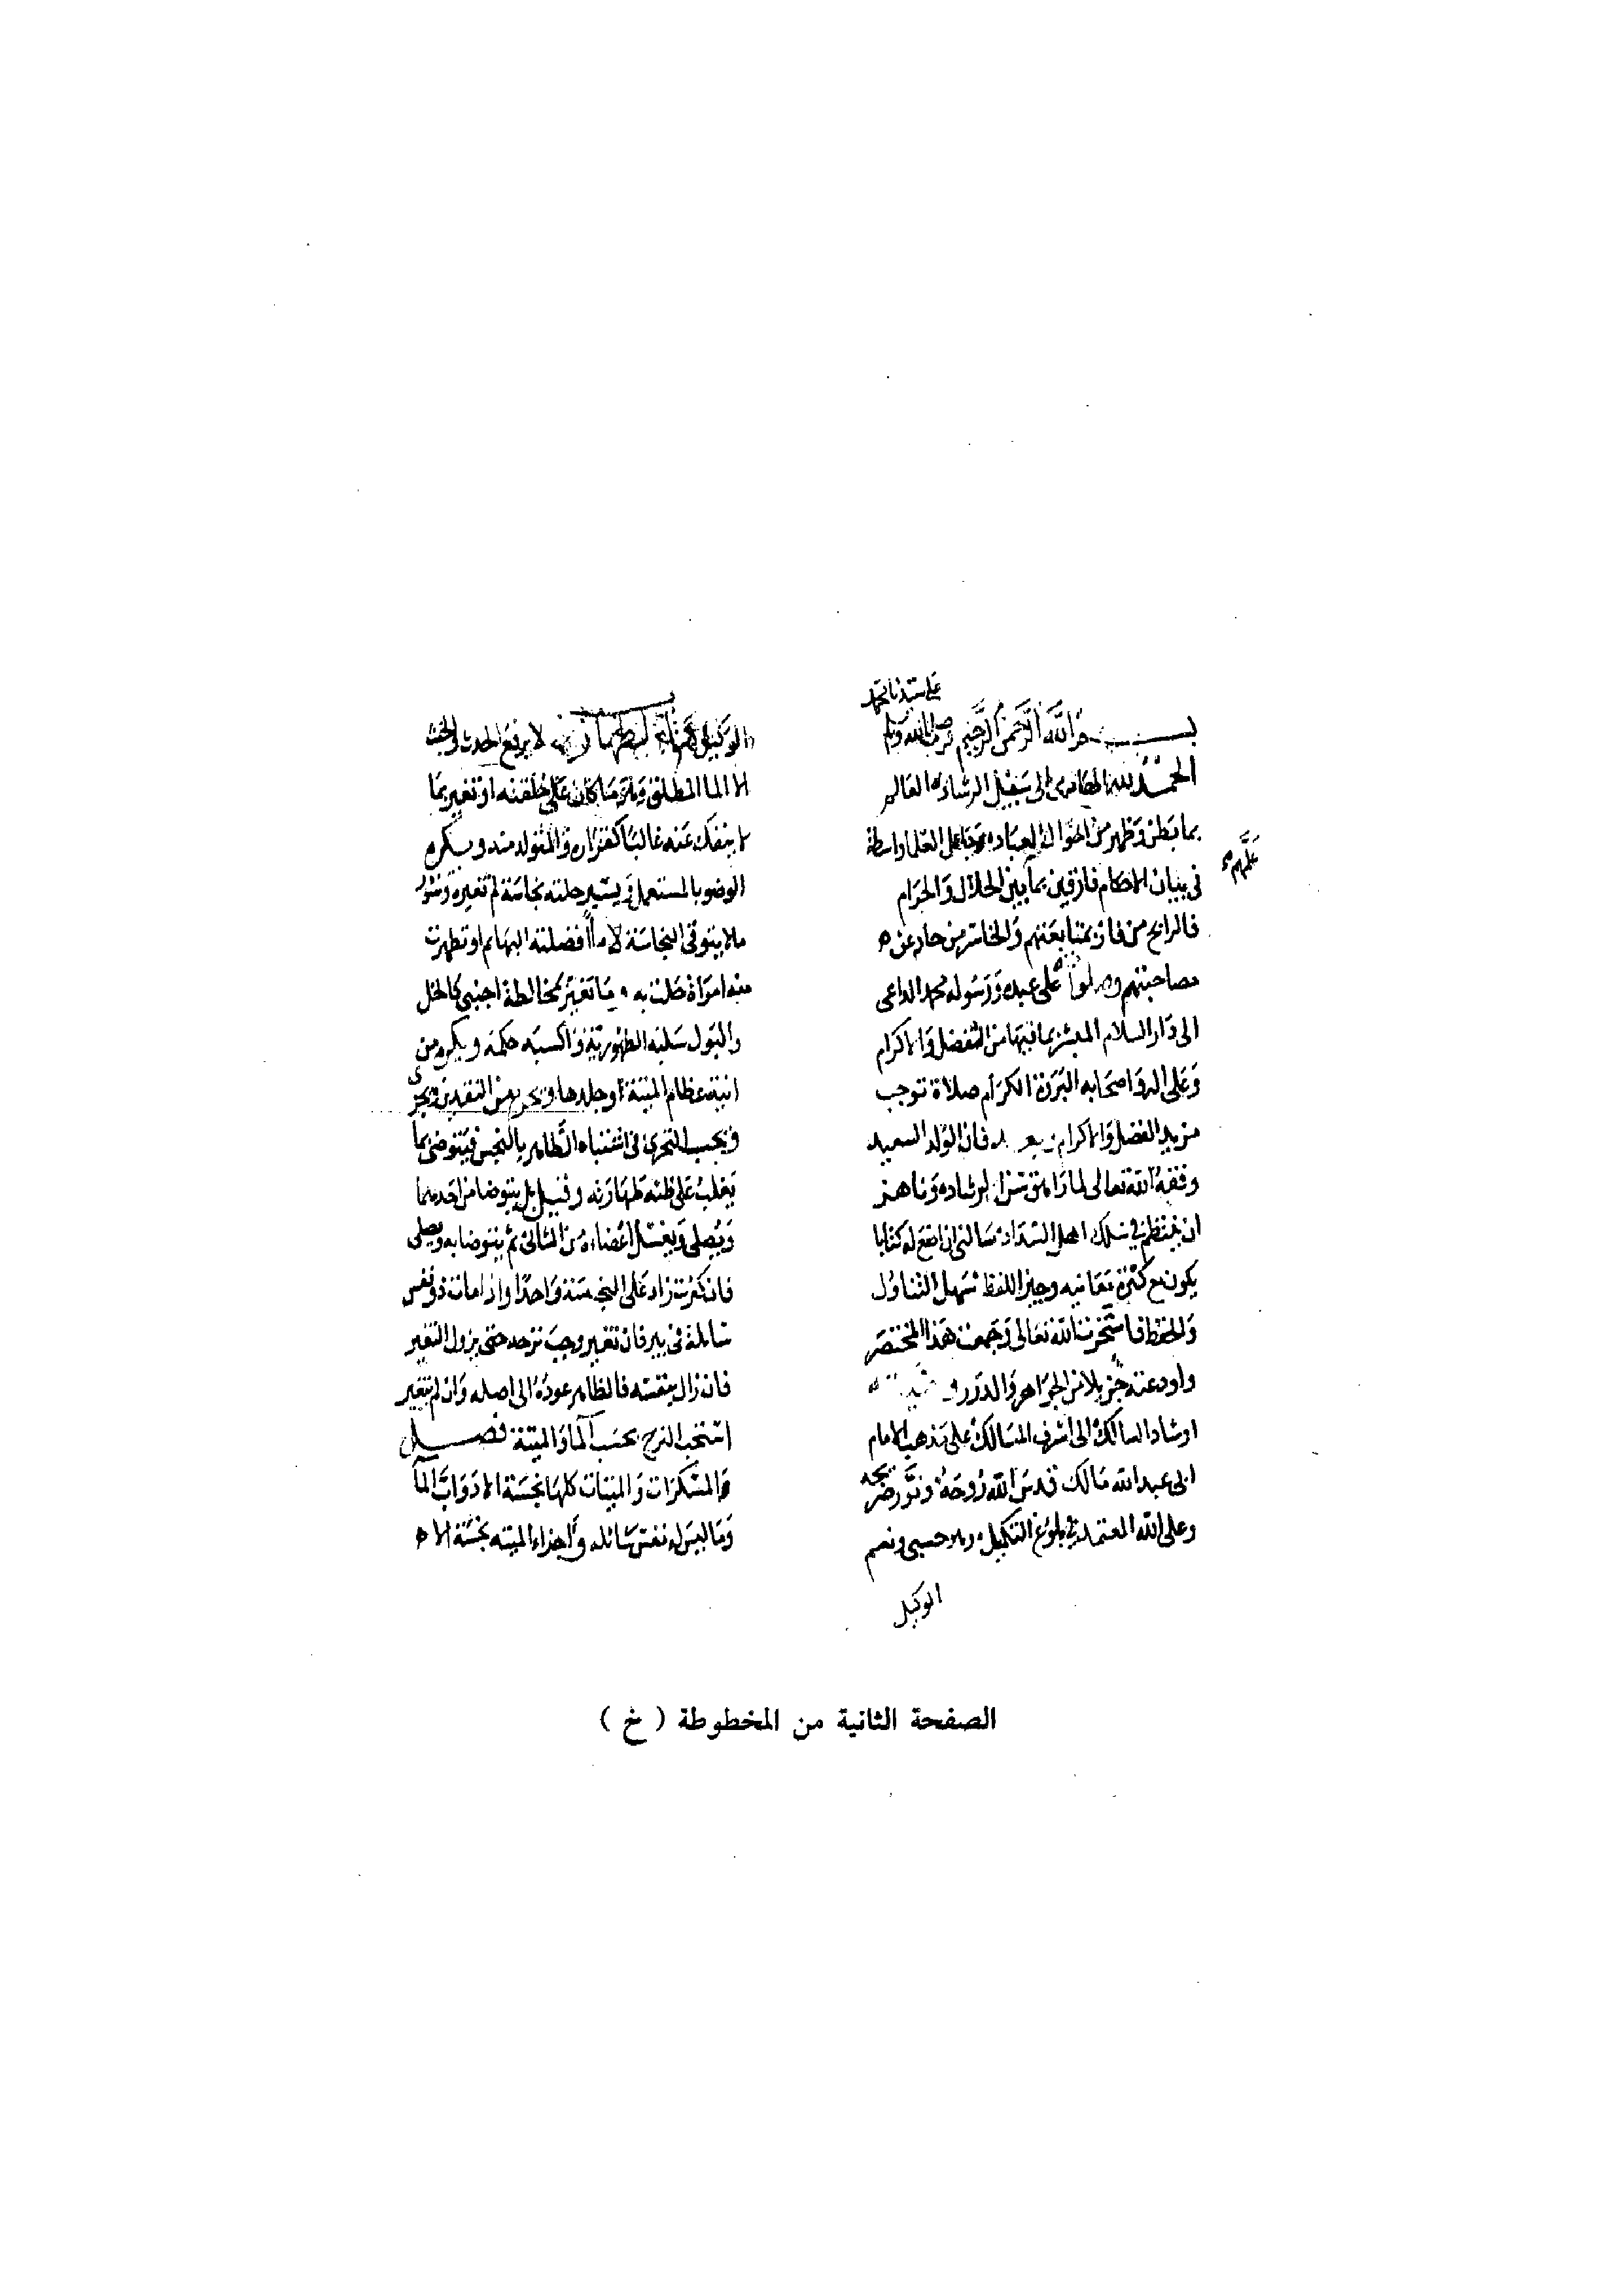 على سيدنا محمد
بسم الله الرحمن الرحيم وصلى الله وسلم
الحمد لله الهادى الى سبيل الرشاد العالم
بما بطن وظهر من احوال العباد العلما واسطة
عليهم
فى بيان الاحكام فارقين بما بين الحلال والحرام
فالرابح من فاز بمتابعتهم والخاسر من حاد عن
مصاحبتهم وصلواته على عبده ورسوله محمد الداعى
الى دار السلام المبشر بما فيها من التفضل والاكرام
وعلى اله واصحابه البررة الكرام صلاة توجب
مزيد الفضل والاكرام وبعد فان الولد السعيد
وفقه الله تعالى لما راهق سن الرشاد وناهز
ان ينتظم فى سلك اهل السداد سالنى ان اضع له كتابا
يكون مع كثرة معانيه وجيز اللفظ سهل التناول
والحفظ فاستخرت الله تعالى وجمعت هذا المختصر
واودعته جزيلا من الجواهر والدرر
ارشاد السالك الى اشرف المسالك على مذهب الامام
ابى عبد الله مالك قدس الله روحه ونور ضريحه
وعلى الله المعتمد فى بلوغ التكميل وهو حسبى ونعم
الوكيل
الوكيل لا يرفع الحدث والخبث
الا الما المطلق وهو ما كان على خلقته او تغير بما
لا ينفك عنه غالبا كقراره والمتولد منه ويكره
الوضو بالمستعمل ويسير حلته نجاسة لم تغيره وسور
ما لا يتوقى النجاسة لا ما افضلته البهائم او تطهرت
منه امراة خلت به وما تغير بمخالطة اجنبى كالخل
والبول سلبه الطهورية واكسبه حكمه ويكره من
انية عظام الميتة وجلدها ويحرم من النقدين ويجزى
ويجب التحرى فى اشتباه الطاهر بالنجس فيتوضى بما
يغلب على ظنه طهارته وقيل بل يتوضا من احدهما
ويصلى ويغسل اعضاءه من الثانى ثم يتوضا به ويصلى
فان كثرت زاد على النجسة واحدا واذا ماتت ذو نفس
سائلة فى بير فان تغير وجب نزحه حتى يزول التغير
فان زال بنفسه فالظاهر عوده الى اصله وان لم يتغير
استحب النزح بحسب الما والميتة فصل
والمسكرات والميتات كلها نجسة الا دواب الما
وما ليس له نفس سائله واجزاء الميته نجسة الا
الصفحة الثانية من المخطوطة ( خ )